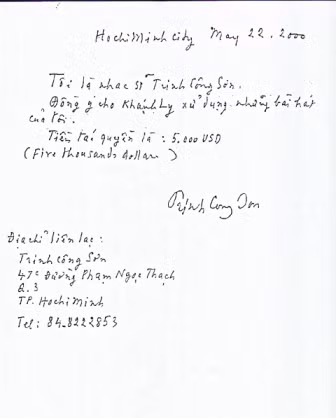 Hochiminh City May 22. 2000
Tôi là nhạc sĩ Trịnh Công Sơn.
Đồng ý cho Khánh Ly xử dụng những bài hát
của tôi.
Tiền tác quyền là : 5.000 USD
(Five thousands dollars)
Trịnh Cong Son
Địa chỉ liên lạc :
Trịnh Công Sơn
47c Đường Phạm Ngọc Thạch
Q. 3
TP. Hochiminh
Tel: 84.8222853